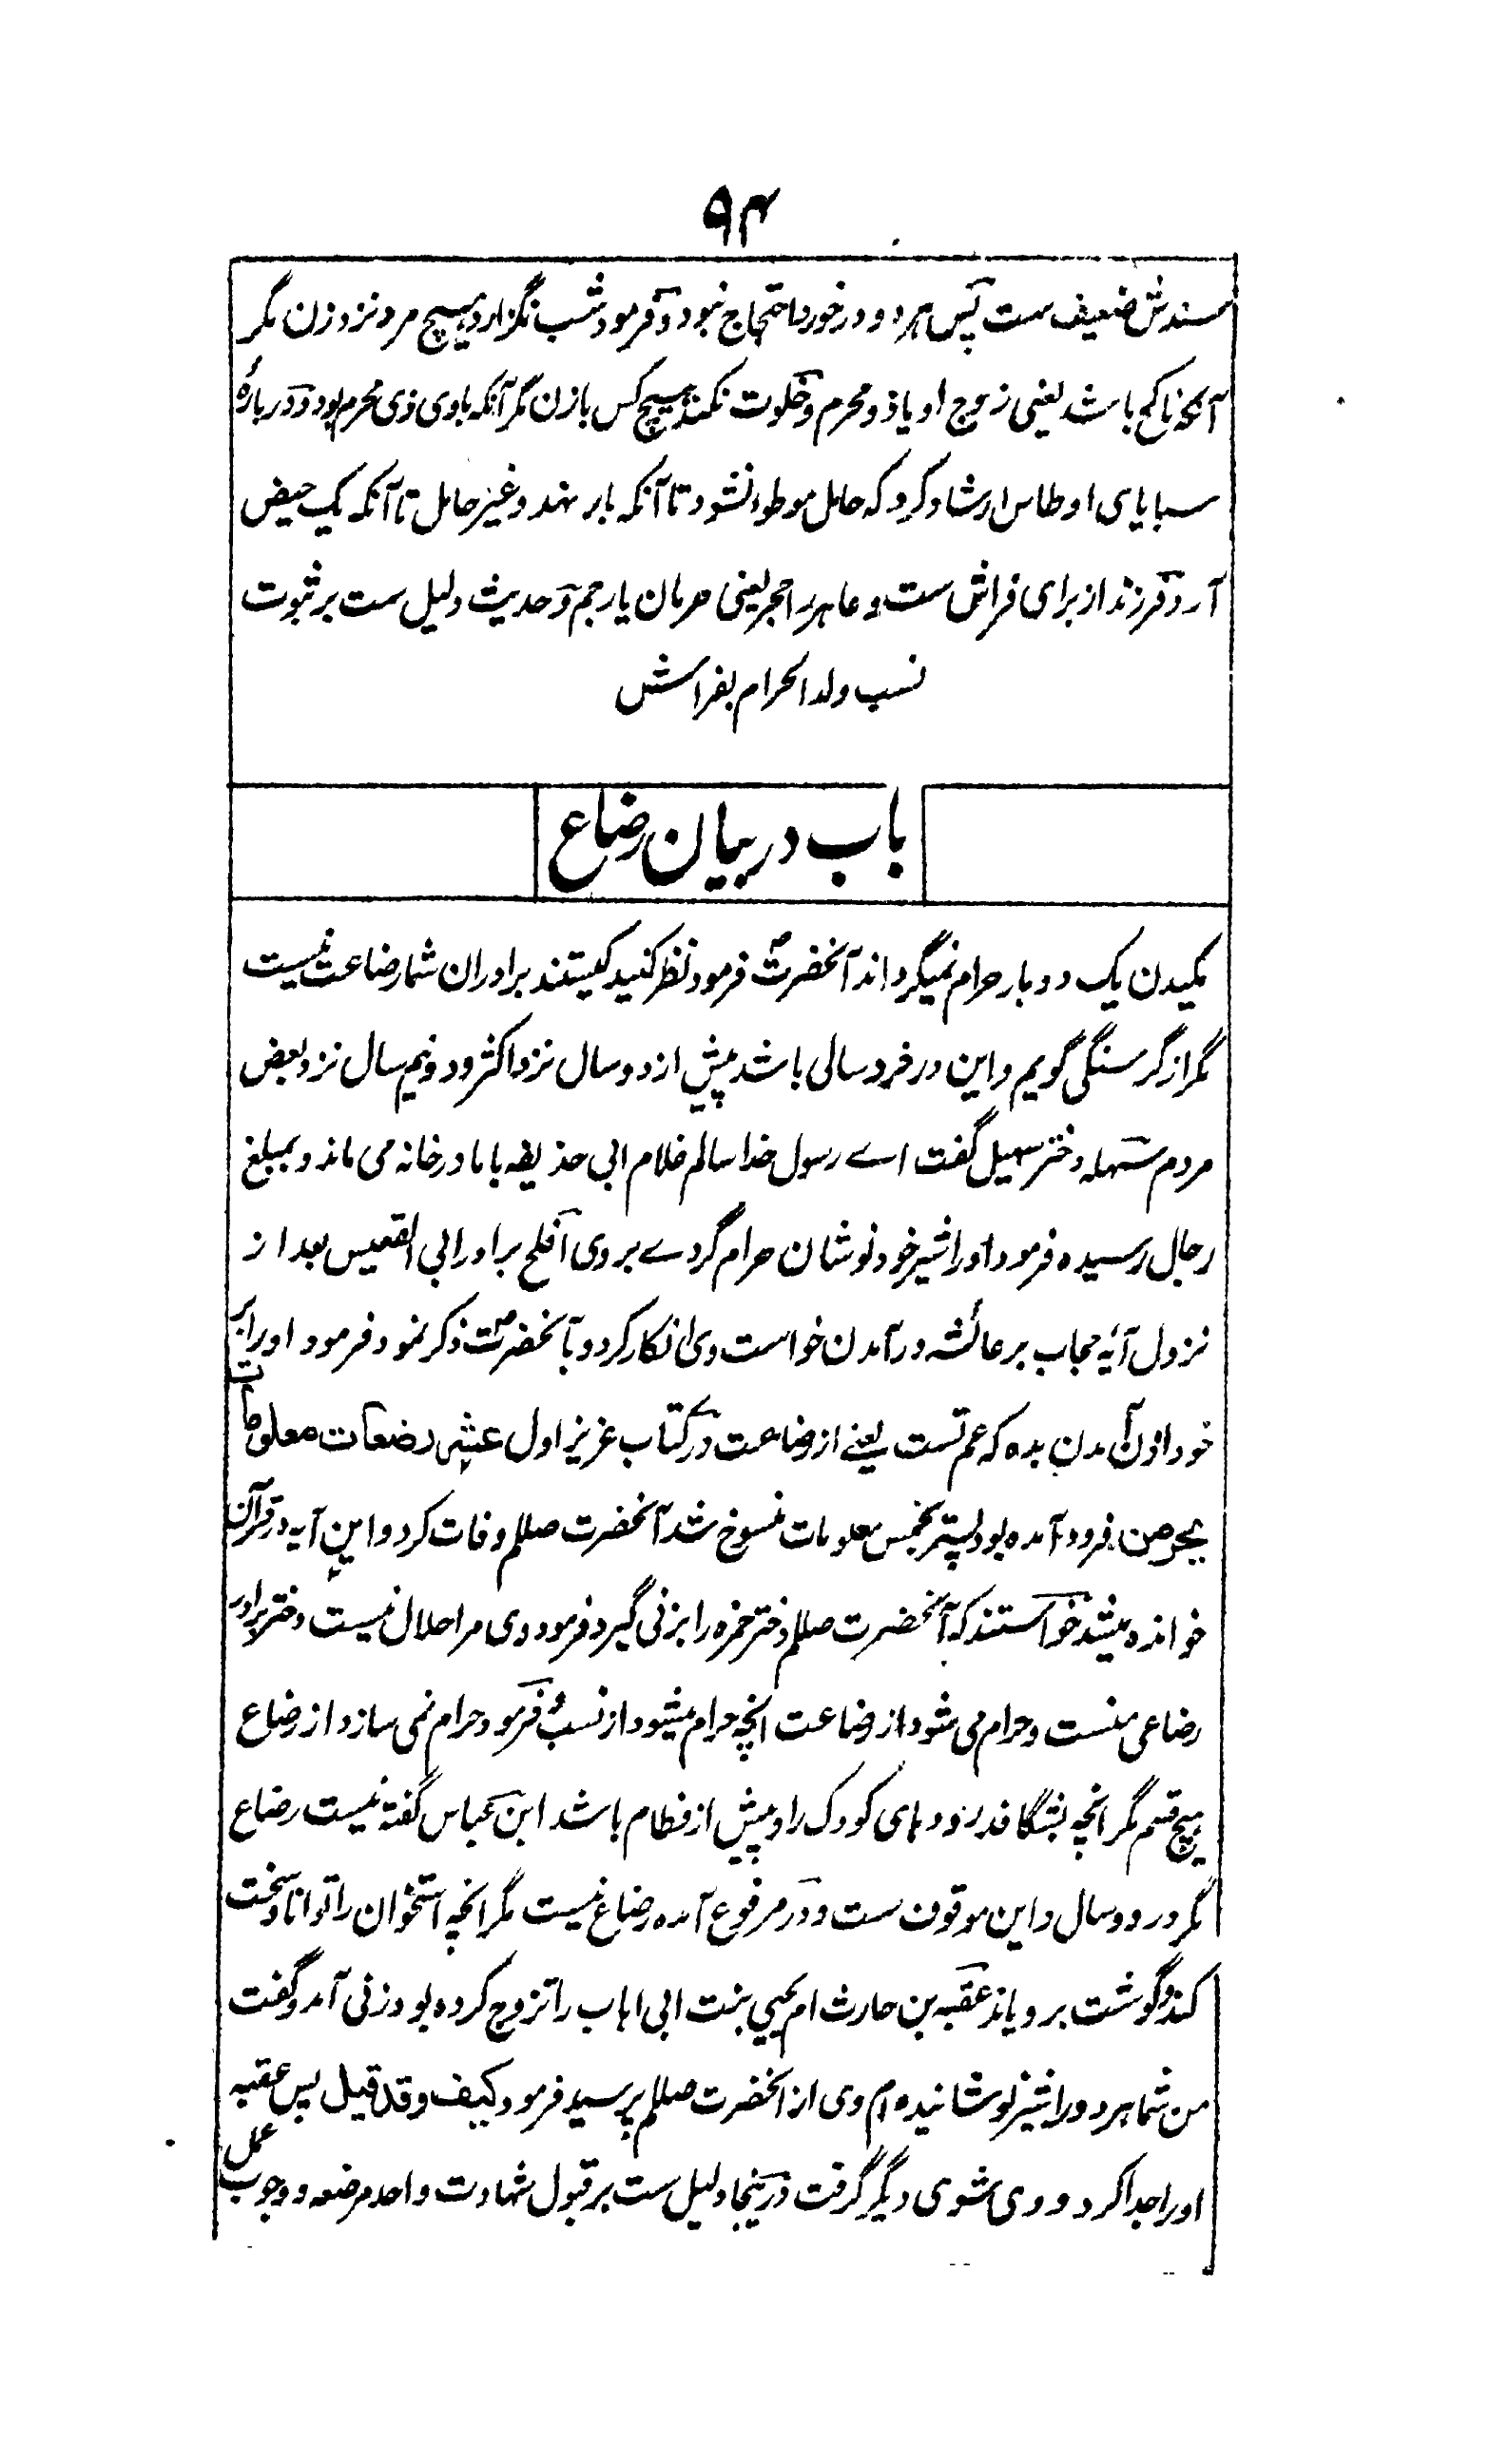 ۹۴
سندش ضعیف ست پس هر دو در خورد احتجاج نبود و فرمود شب نگزارد هیچ مرد نزد زن مگر
آنکه ناکح باشد یعنی زوج او یا ذو محرم و خلوت نکند هیچ کس بازن مگر آنکه باوی ذی محرم بود و درباره
سبایای اوطاس ارشاد کرد که حامل موطوء نشود تا آنکه بار نهد و غیر حامل تا آنکه یک حیض
آرد و فرزند از برای فراش ست و عاهر را حجر یعنی حرمان یا رجم و حدیث دلیل ست بر ثبوت
نسب ولد الحرام بفراش
باب در بیان رضاع
مکیدن یک دو بار حرام نمیگرداند آنحضرتؐ فرمود نظر کنید کیستند برادران شما رضاعت نیست
مگر از گرسنگی گویم و این در خرد سالی باشد پیش از دو سال نزد اکثر و دو نیم سال نزد بعض
مردم سهله دختر سهیل گفت اے رسول خدا سالم غلام ابی حذیفه باما در خانه می ماند و بمبلغ
رجال رسیده فرمود اورا شیر خود نوشان حرام گردے بروی افلح برادر ابی القعیس بعد از
نزول آیهٔ حجاب بر عائشه در آمدن خواست وی انکار کرد و بآنحضرتؐ ذکر نمود فرمود اورا بر
خود اذن آمدن بده که عم تست یعنے از رضاعت در کتاب عزیز اول عشر رضعات معلومات
یحرمن فرود آمده بود پستر بخمس معلومات منسوخ شد آنحضرت صللم وفات کرد و این آیه در قرآن
خوانده میشد خواستند که آنحضرت صللم دختر حمزه را بزنی گیرد فرمود وی مرا حلال نیست دختر برادر
رضاعی منست و حرام می شود از رضاعت انچه حرام میشود از نسب و فرمود حرام نمی سازد از رضاع
هیچ قسم مگر انچه بشگافد روده های کودک را و پیش از فطام باشد ابن عباس گفته نیست رضاع
مگر در دو سال و این موقوف ست و در مرفوع آمده رضاع نیست مگر انچه استخوان را توانا و سخت
کند و گوشت برویاند عقبه بن حارث ام یحیی بنت ابی اهاب را تزوج کرده بود زنی آمد و گفت
من شما هر دو را شیر نوشانیده ام وی از انحضرت صللم پرسید فرمود کیف و قد قیل پس عقبه
اورا جدا کرد و وی شوی دیگر گرفت و درینجا دلیل ست بر قبول شهادت واحد مرضعه و وجوب عمل